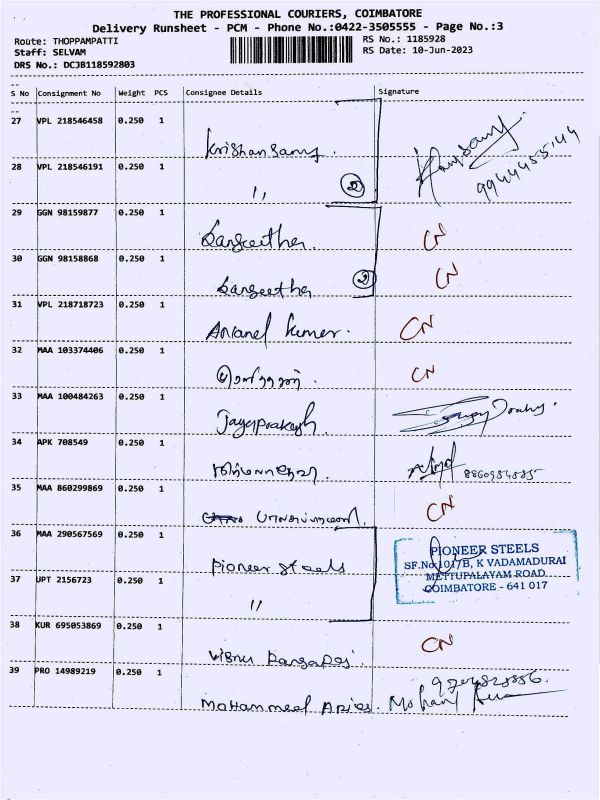 THE PROFESSIONAL COURIERS, COIMBATORE
Delivery Runsheet - PCM - Phone No.:0422-3505555 - Page No.:3
Route: THOPPAMPATTI
Staff: SELVAM
DRS No.: DCJB118592803
RS No.: 1185928
RS Date: 10-Jun-2023
S No Consignment No Weight PCS Consignee Details Signature
27 VPL 218546458 0.250 1 Krishansamy
28 VPL 218546191 0.250 1 " 2
29 GGN 98159877 0.250 1 Sangeetha. CN
30 GGN 98158868 0.250 1 Sangeetha 2 CN
31 VPL 218718723 0.250 1 CN
32 MAA 103374406 0.250 1 CN
33 MAA 100484263 0.250 1 Jayaprakash.
34 APK 708549 0.250 1
35 MAA 860299869 0.250 1 CN
36 MAA 290567569 0.250 1 Pioneer steels
PIONEER STEELS
SF.No.1017B, K VADAMADURAI
METTUPALAYAM ROAD
COIMBATORE - 641 017
37 UPT 2156723 0.250 1 "
38 KUR 695053869 0.250 1 CN
39 PRO 14989219 0.250 1